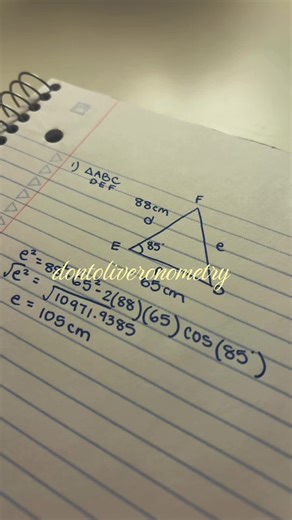 1) △ABC
DEF
F
88cm
d
E
85°
e
65cm
D
dontoliveronometry
e² = 88² 65² - 2(88)(65) cos(85°)
√e² = √10971.9385
e = 105cm